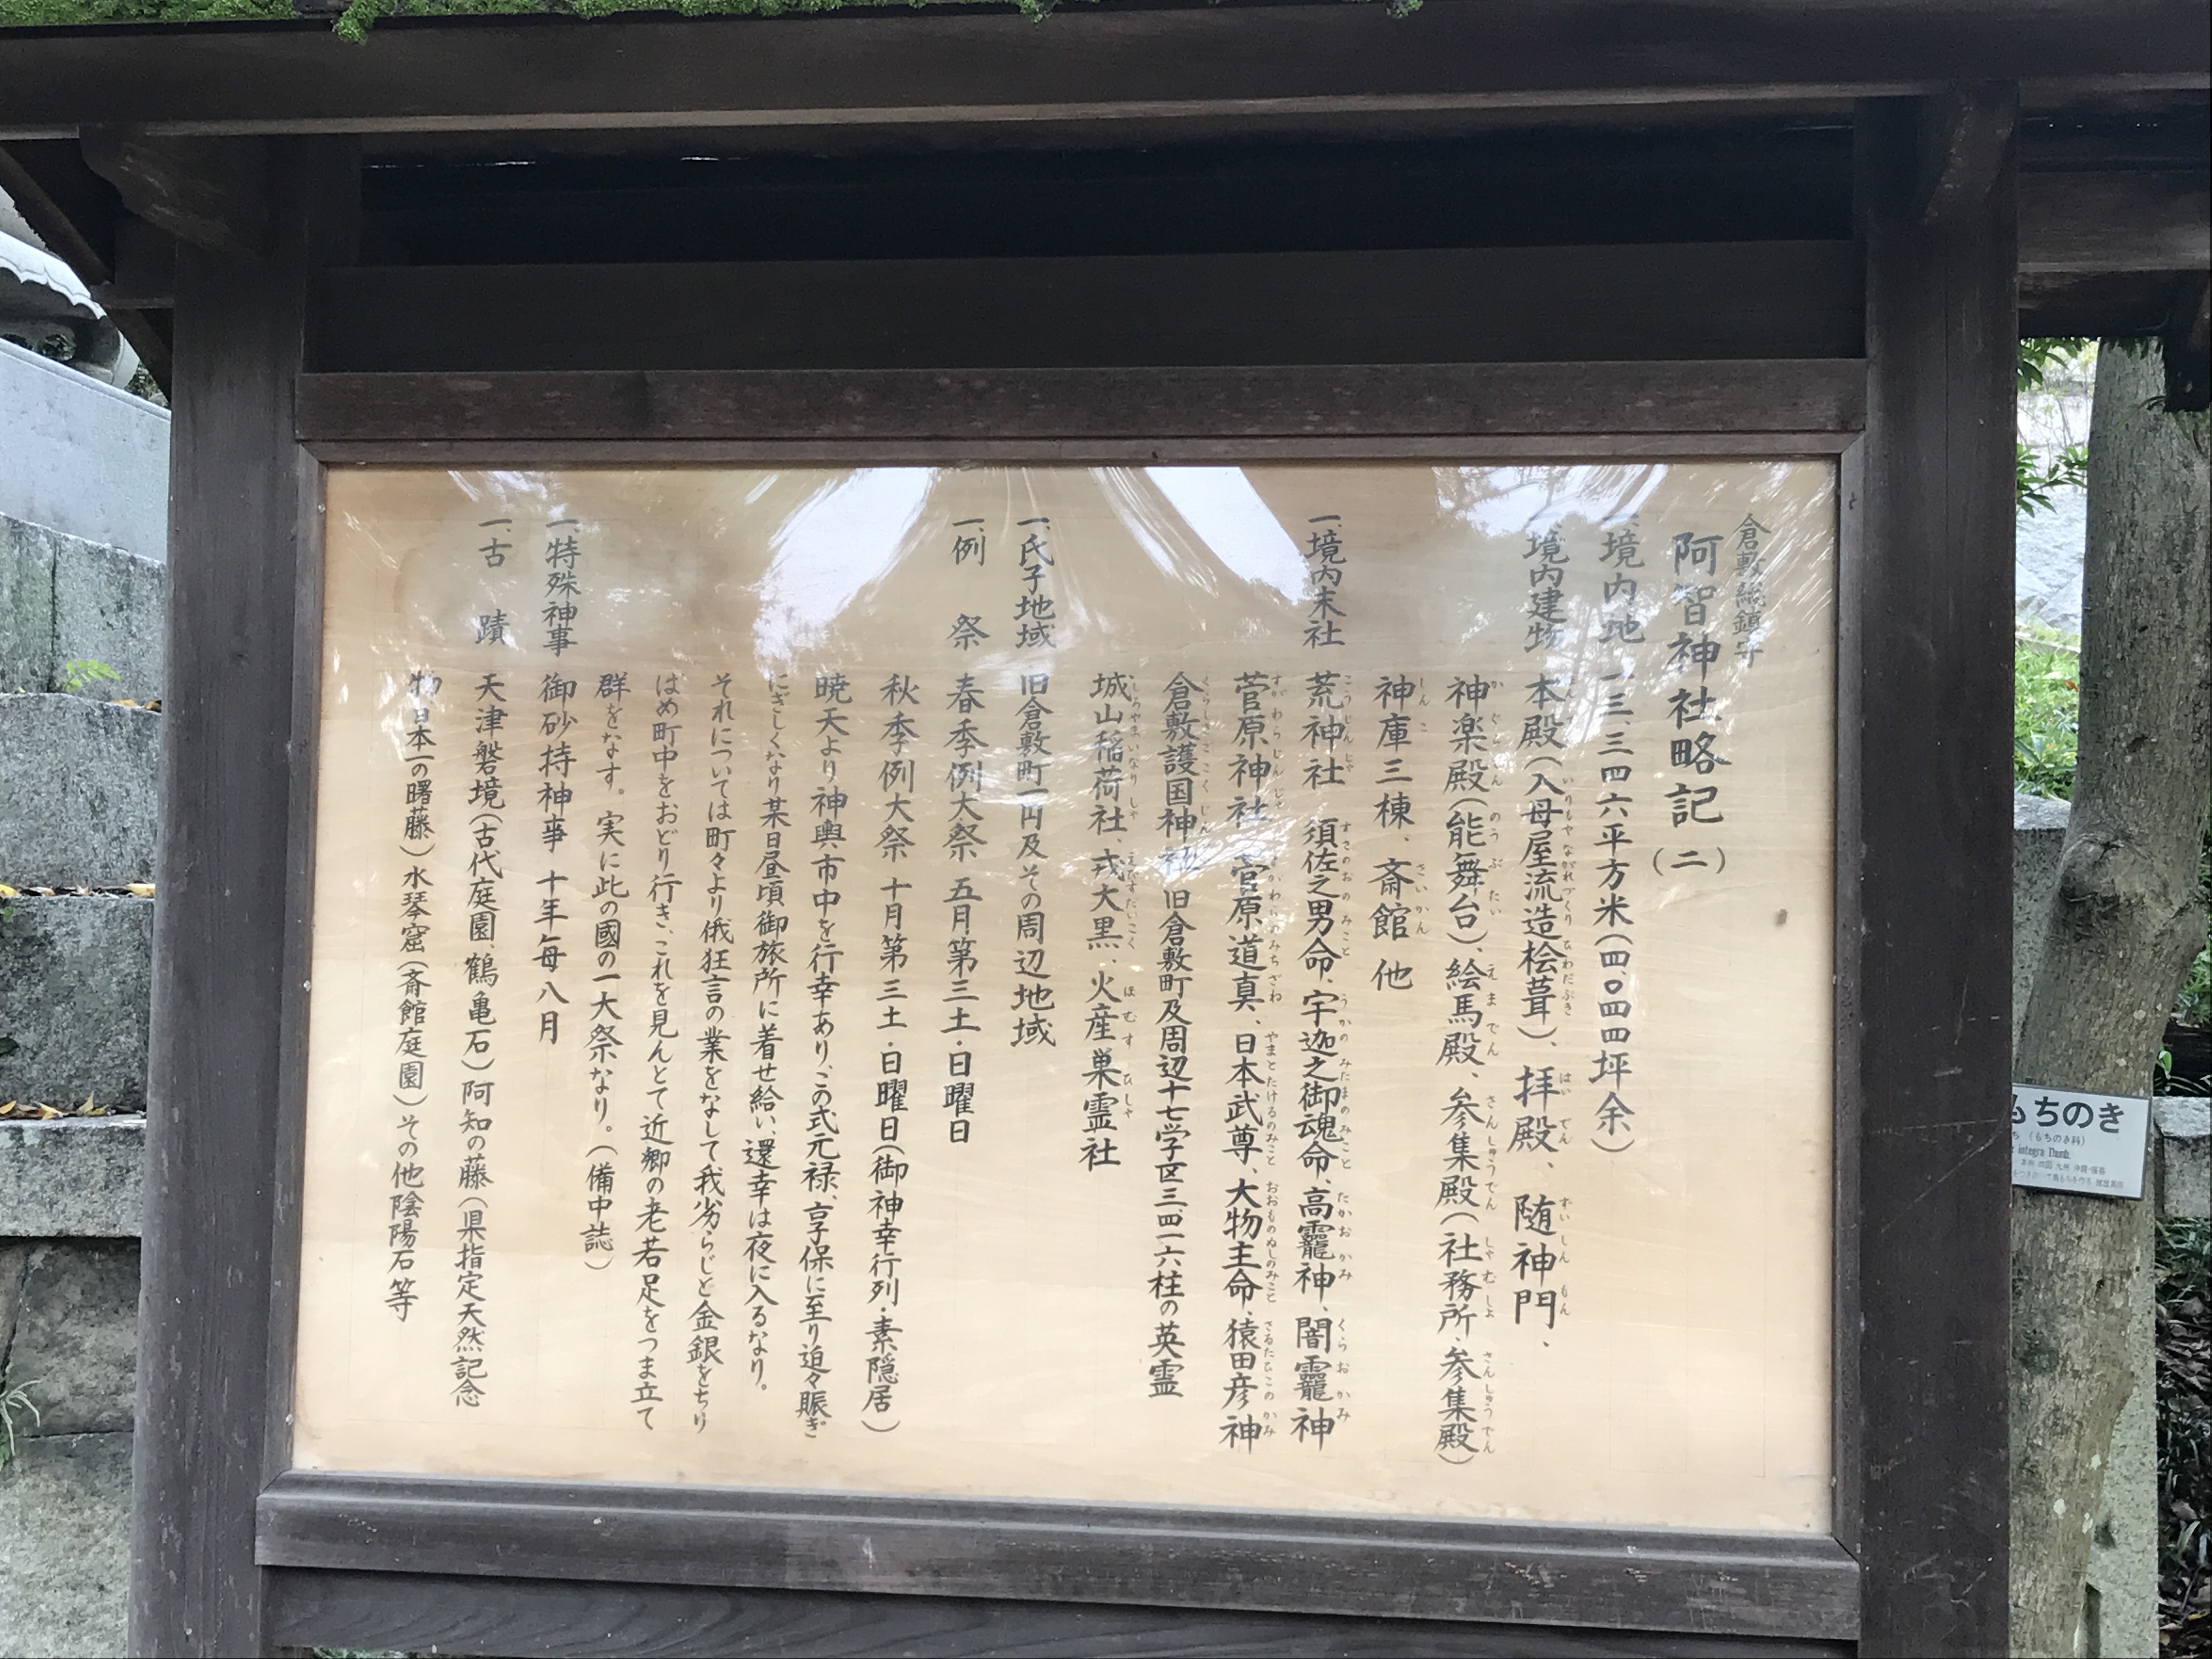 倉敷総鎮守
阿智神社略記(二)
一、境内地 一三、三四六平方米(四、〇四四坪余)
一、境内建物 本殿(入母屋流造桧葺)、拝殿、随神門、
神楽殿(能舞台)、絵馬殿、参集殿(社務所・参集殿)
神庫三棟、斎館 他
一、境内末社 荒神社 須佐之男命、宇迦之御魂命、高龗神、闇龗神
菅原神社 菅原道真、日本武尊、大物主命、猿田彦神
倉敷護国神社 旧倉敷町及周辺十七学区三四一六柱の英霊
城山稲荷社、戎大黒、火産巣霊社
一、氏子地域 旧倉敷町一円及その周辺地域
一、例祭 春季例大祭 五月第三土・日曜日
秋季例大祭 十月第三土・日曜日(御神幸行列・素隠居)
暁天より神輿市中を行幸あり、この式元禄、享保に至り迨々賑ぎ
にぎしくなり某日昼頃御旅所に着せ給い、還幸は夜に入るなり。
それについては町々より俄狂言の業をなして我劣らじと金銀をちり
はめ町中をおどり行き、これを見んとて近郷の老若足をつま立て
群をなす。実に此の國の一大祭なり。(備中誌)
一、特殊神事 御砂持神事 十年毎八月
一、古蹟 天津磐境(古代庭園、鶴亀石)阿知の藤(県指定天然記念
物 日本一の曙藤)水琴窟(斎館庭園)その他陰陽石等
もちのき
(もちのき科)
integra Thunb.
本州 四国 九州 沖縄・張幕